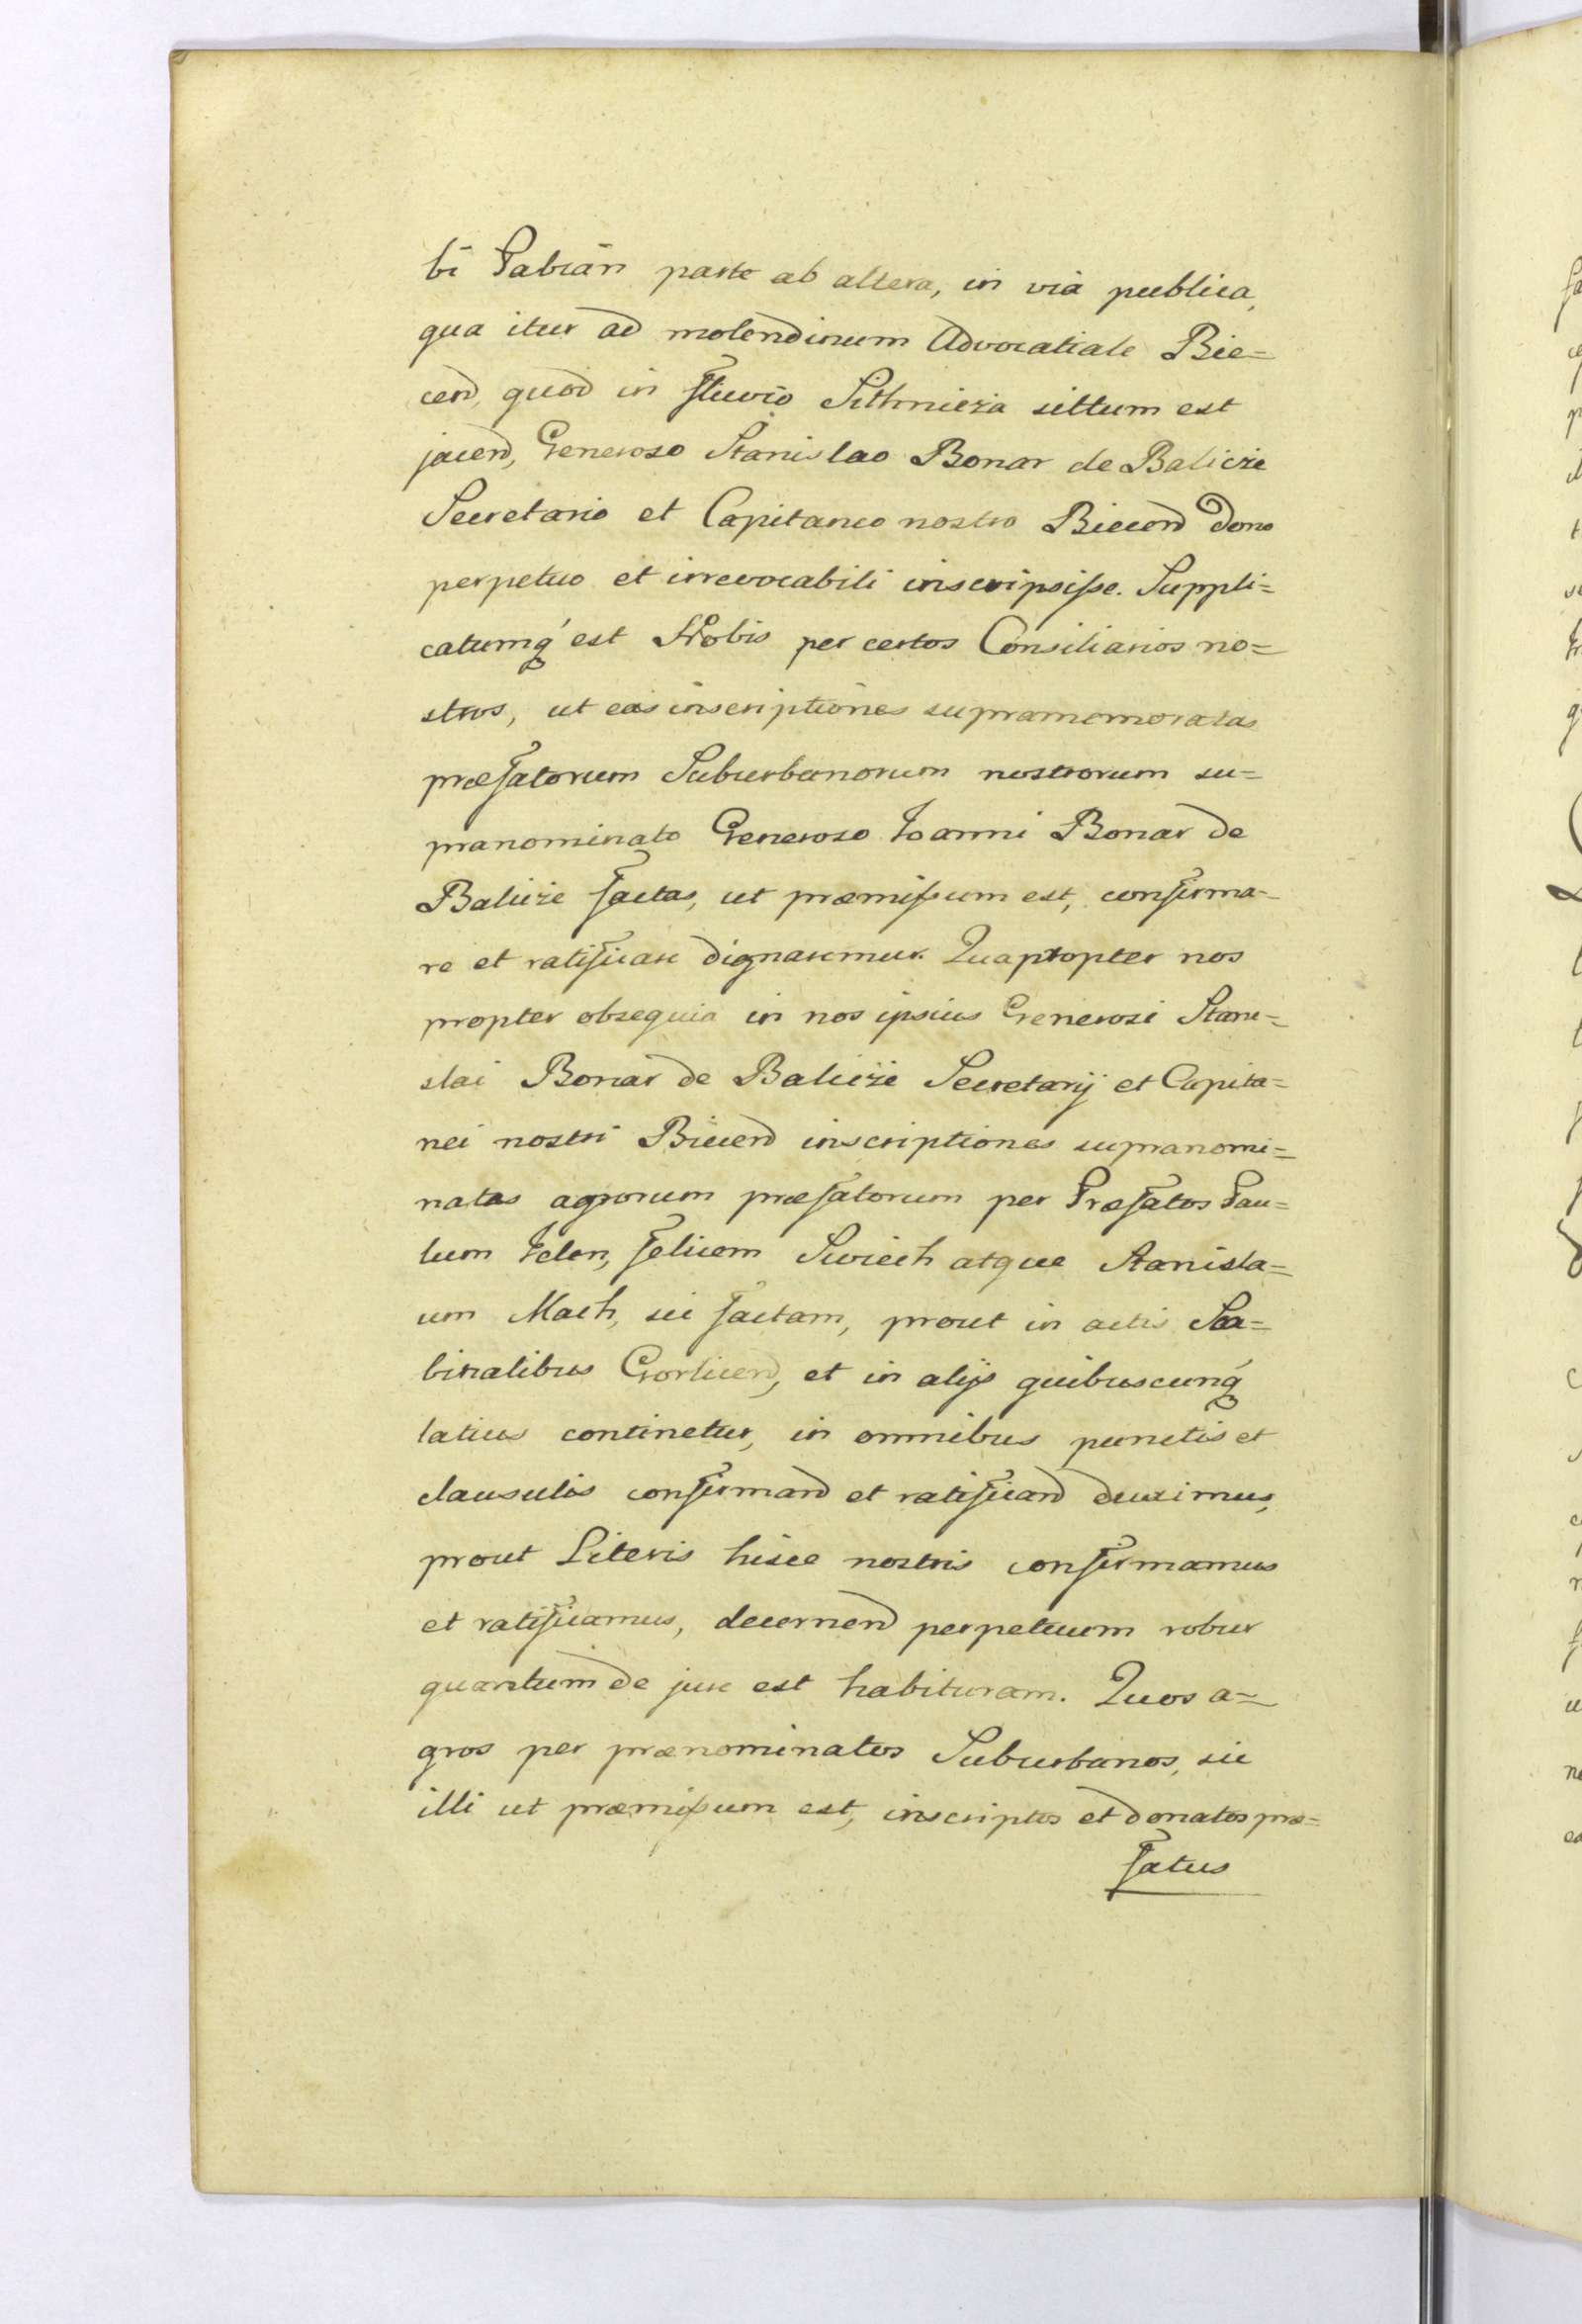 bi Fabian parte ab altera, in via publica,
qua itur ad molendinum Advocatiale Bie=
cend, quod in fluvio Sithnieza sittum est
jacend, Generoso Stanislao Bonar de Balicze
Secretario et Capitaneo nostro Biecend Dono
perpetuo et irrevocabili inscripsisse. Suppli=
catumq́ est Nobis per certos Consiliarios no=
stros, ut eas inscriptiones supramemoratas
præfatorum Suburbanorum nostrorum su=
pranominato Generoso Ioanni Bonar de
Balicze factas, ut præmissum est, confirma-
re et ratificare dignaremur. Quapropter nos
propter obsequia in nos ipsius Generosi Stani=
slai Bonar de Balicze Secretarij et Capita=
nei nostri Biecend inscriptiones supranomi=
natas agrorum præfatorum per Præfatos Pau=
lum Ielen, Felicem Swiech atque Stanisla=
um Mach, sic factam, prout in actis Sca=
binalibus Gorlicend, et in alijs quibuscunq́
latius continetur, in omnibus punctis et
clausulis confirmand et ratificand duximus,
prout Literis hisce nostris confirmamus
et ratificamus, decernend perpetuum robur
quantum de jure est habituram. Quos a=
gros per prænominatos Suburbanos, sic
illi ut præmissum est, inscriptos et donatos præ=
fatus